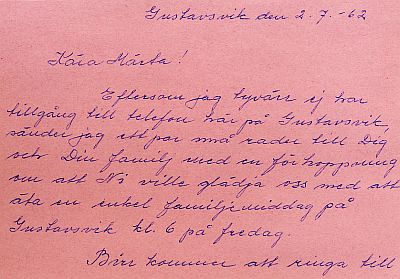 Gustavsvik den 2.7.-62
Kära Märta!
Eftersom jag tyvärr ej har
tillgång till telefon här på Gustavsvik,
sänder jag ett par små rader till Dig
och Din familj med en förhoppning
om att Ni ville glädja oss med att
äta en enkel familjemiddag på
Gustavsvik kl. 6 på fredag.
Birr kommer att ringa till